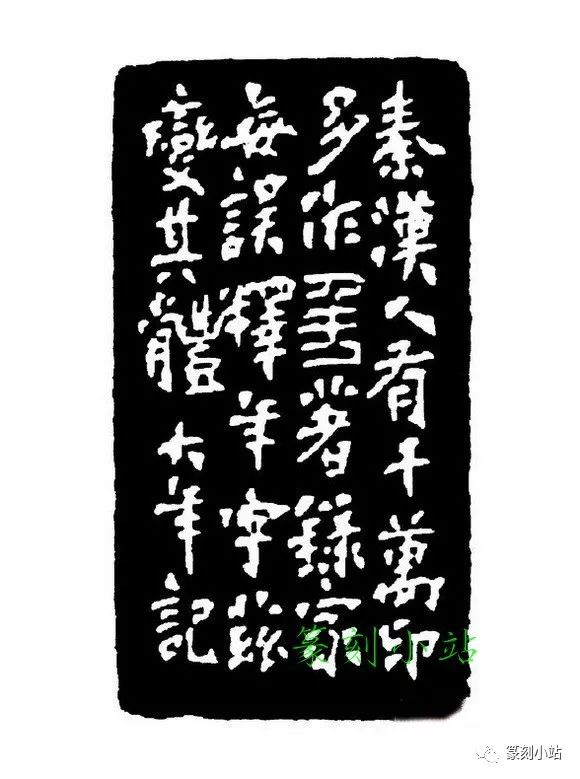 秦漢人有千萬印
多作著錄家
每誤釋年字茲
變其體 大年記
篆刻小站
篆刻小站